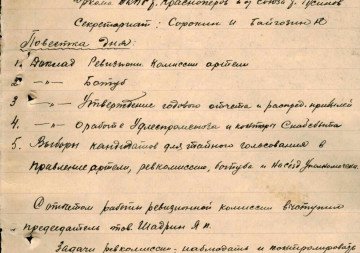 Секретариат: Сорокин и Байгозин Ю
Повестка дня:
1. Доклад Ревизион. Комиссии артели
2 —"— Божуб
3 —"— Утверждение годового отчета и распред. прибылей
4. —"— о работе Удмеспромсоюза и конторы Снабсбыта
5. Выборы кандидатов для тайного голосования в
правление артели, ревкомиссию,
С отчетом работы ревизионной комиссии выступил
председатель тов. Шадрин Я П.
Задачи ревкомиссии - наблюдать и контролировать